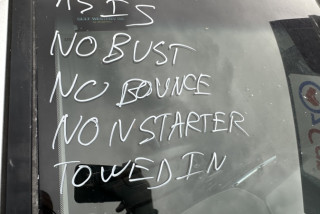 AS IS
NO BUST
NO BOUNCE
NON STARTER
TOWED IN